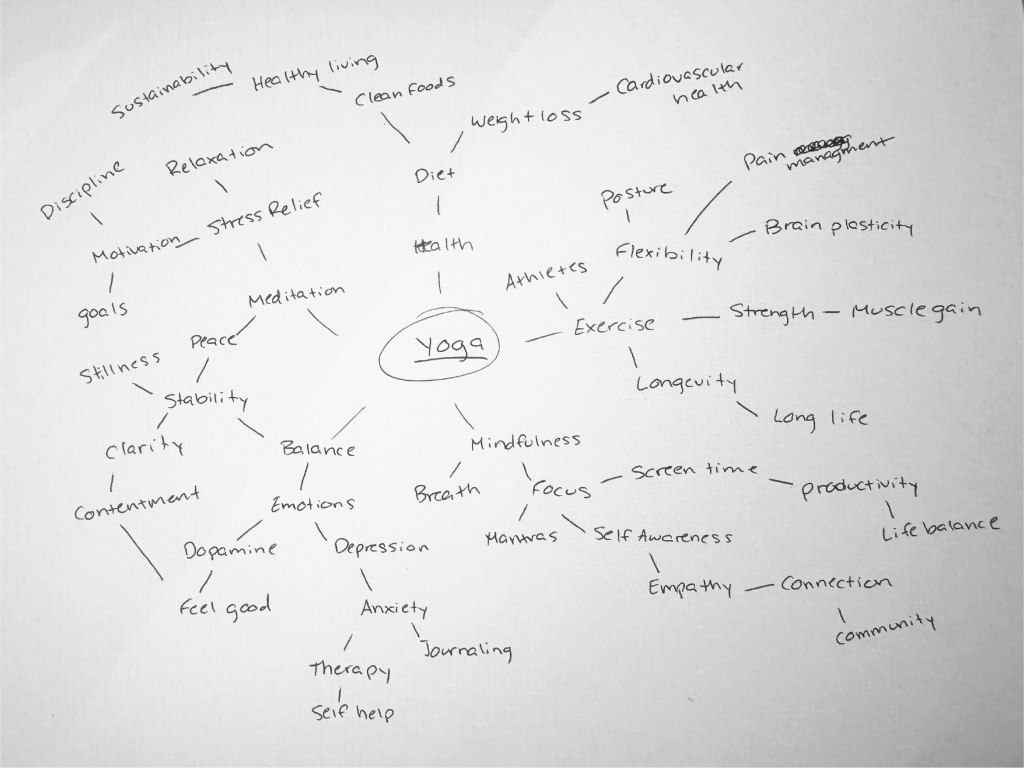 Sustainability
Healthy living
Clean foods
Weight loss
Cardiovascular
health
Diet
Health
Discipline
Relaxation
Stress Relief
Motivation
goals
Meditation
Peace
Stillness
Stability
Clarity
Contentment
Yoga
Athletes
Posture
Pain
managment
Flexibility
Brain plasticity
Exercise
Strength
Muscle gain
Longevity
Long life
Balance
Emotions
Dopamine
Feel good
Depression
Anxiety
Journaling
Therapy
Self help
Mindfulness
Breath
Focus
Mantras
Screen time
productivity
Life balance
Self Awareness
Empathy
Connection
community